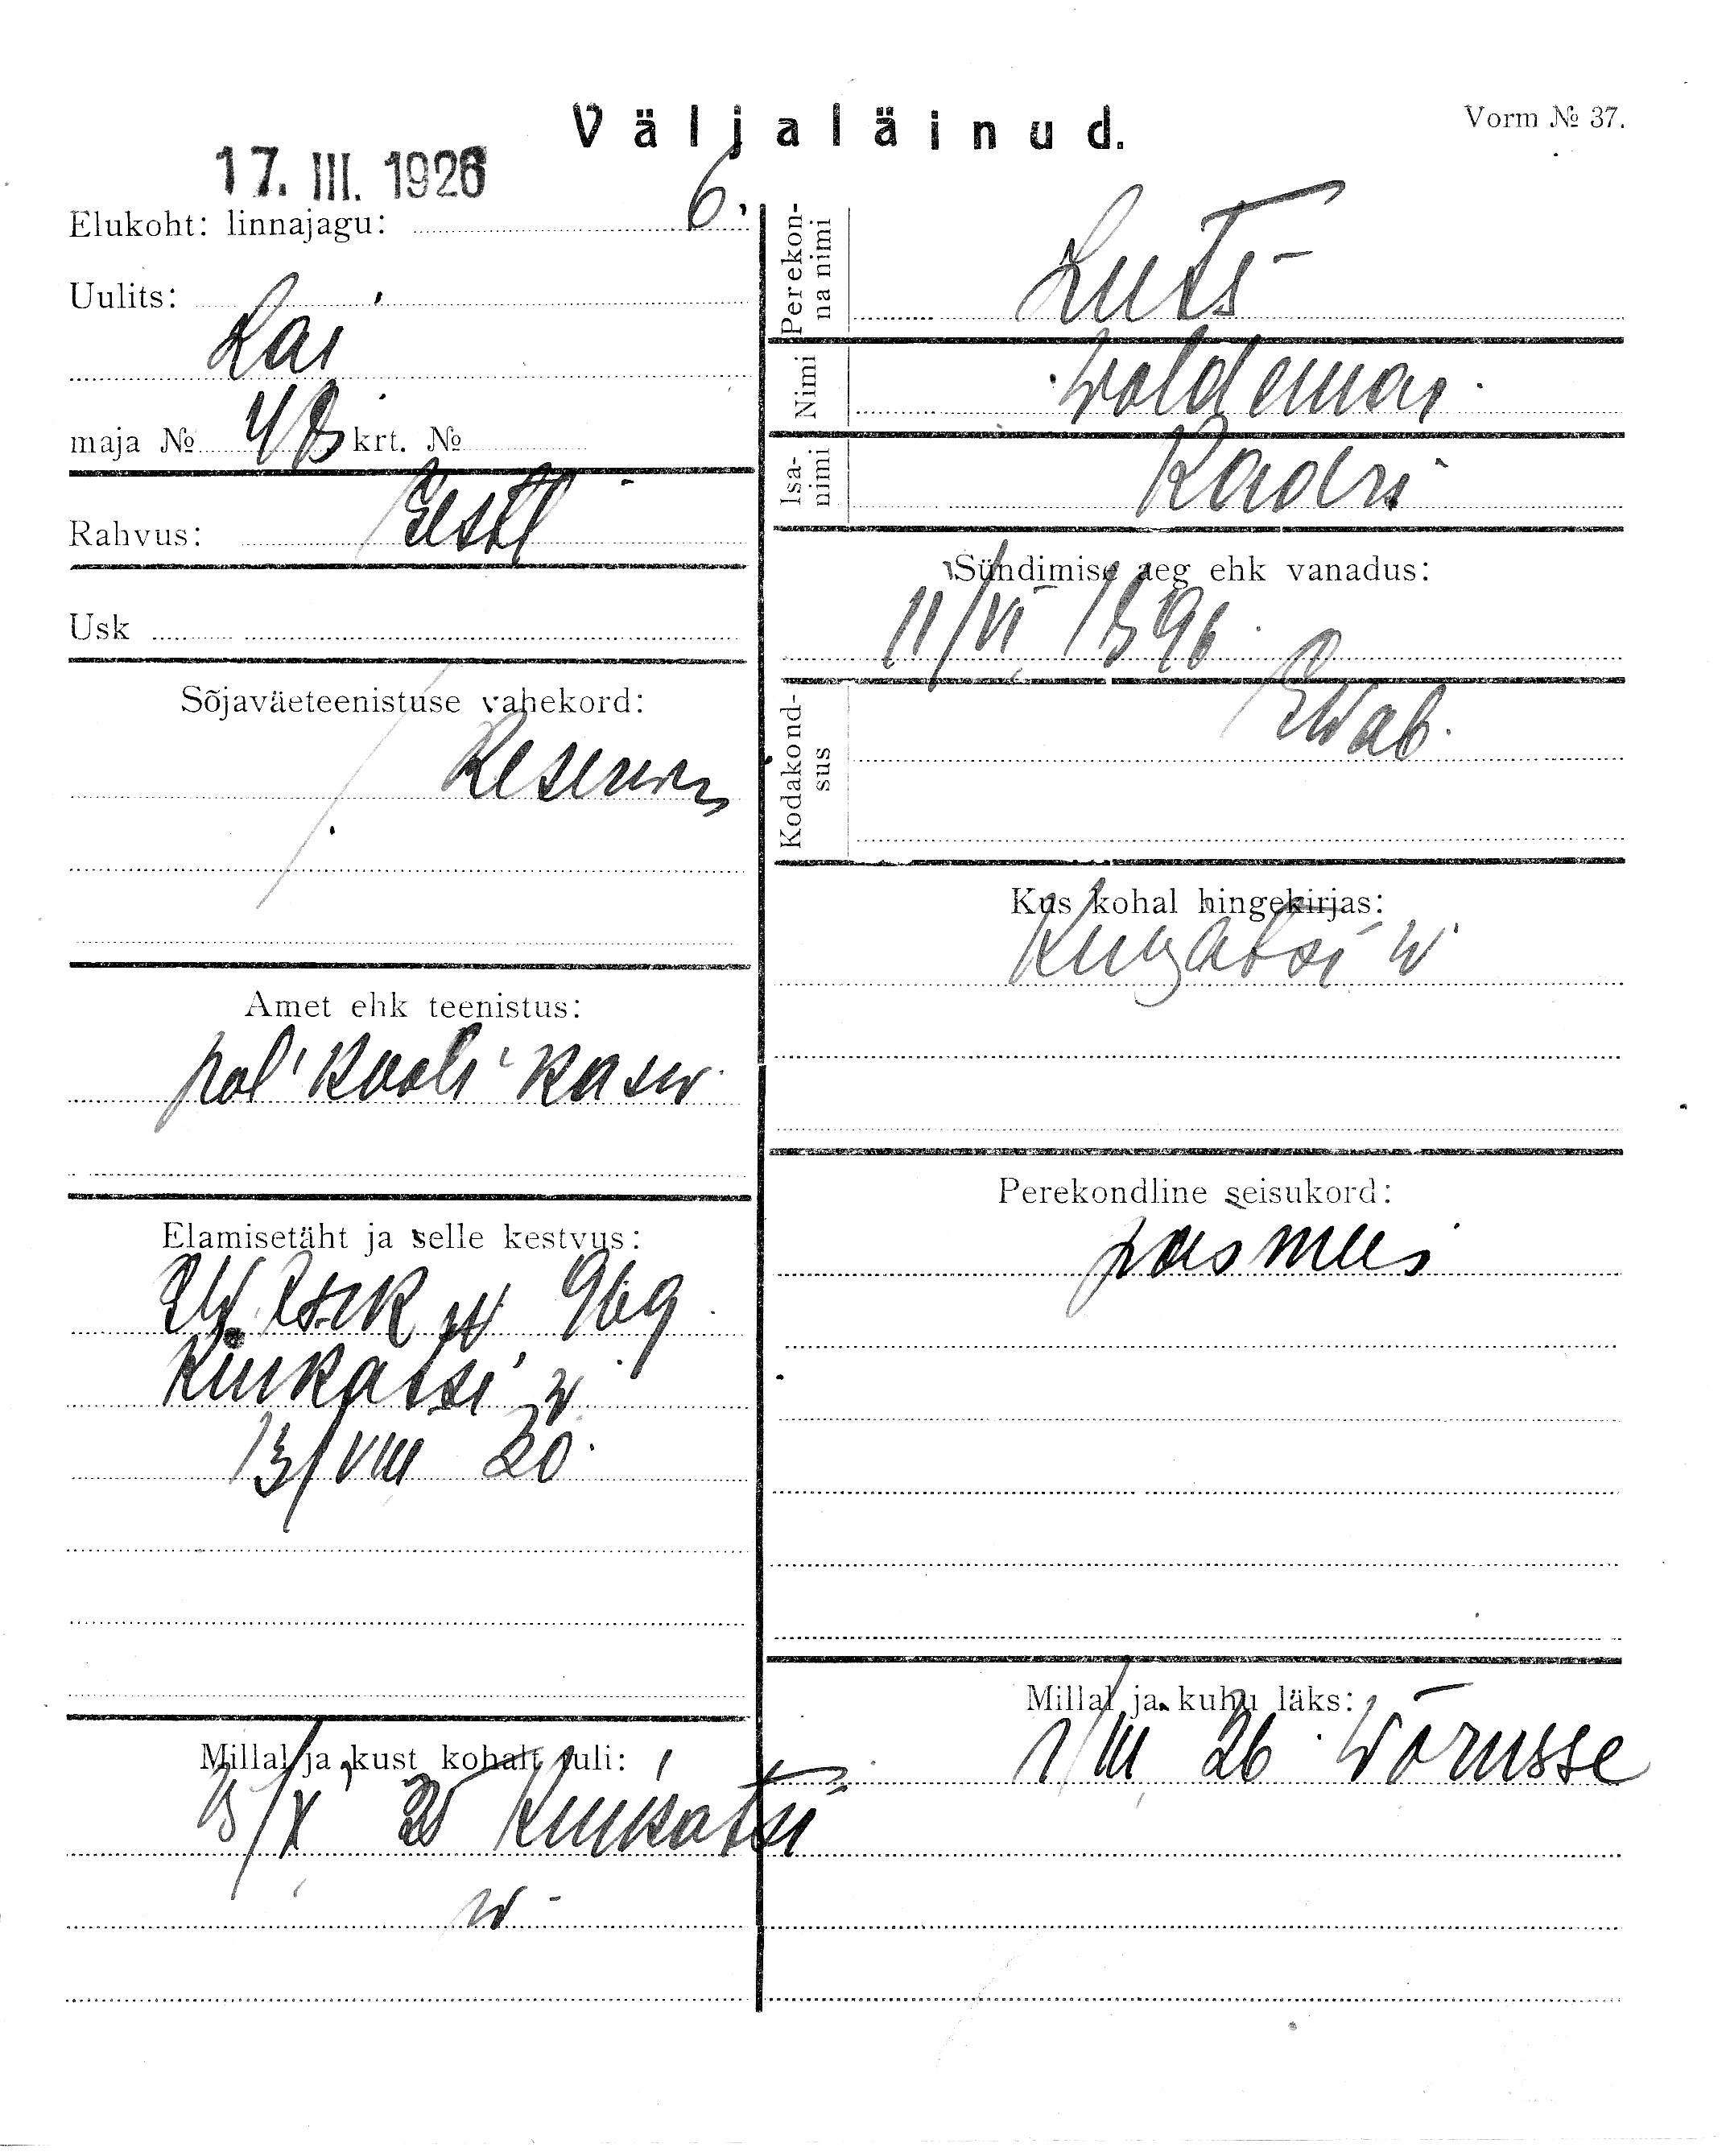 Väljaläinud.
Vorm № 37.
17. III. 1926
Elukoht: linnajagu: 6.
Uulits:
Lai
maja № krt. №
Rahvus: Eesti
Usk
Sõjaväeteenistuse vahekord:
Reservis
Amet ehk teenistus:
pol kooli kasv.
Elamisetäht ja selle kestvus:
969
Kuikatsi w
13/VIII 20.
Millal ja kust kohalt tuli:
/X 25 Kuikatsi
w
Perekon-
na nimi
Luts
Nimi
Woldemar
Isa-
nimi
Kadri
Sündimise aeg ehk vanadus:
11/VI 1896
Kodakond-
sus
E Wab.
Kus kohal hingekirjas:
w
Perekondline seisukord:
poismees
Millal ja kuhu läks:
1/III 26 Wõrusse